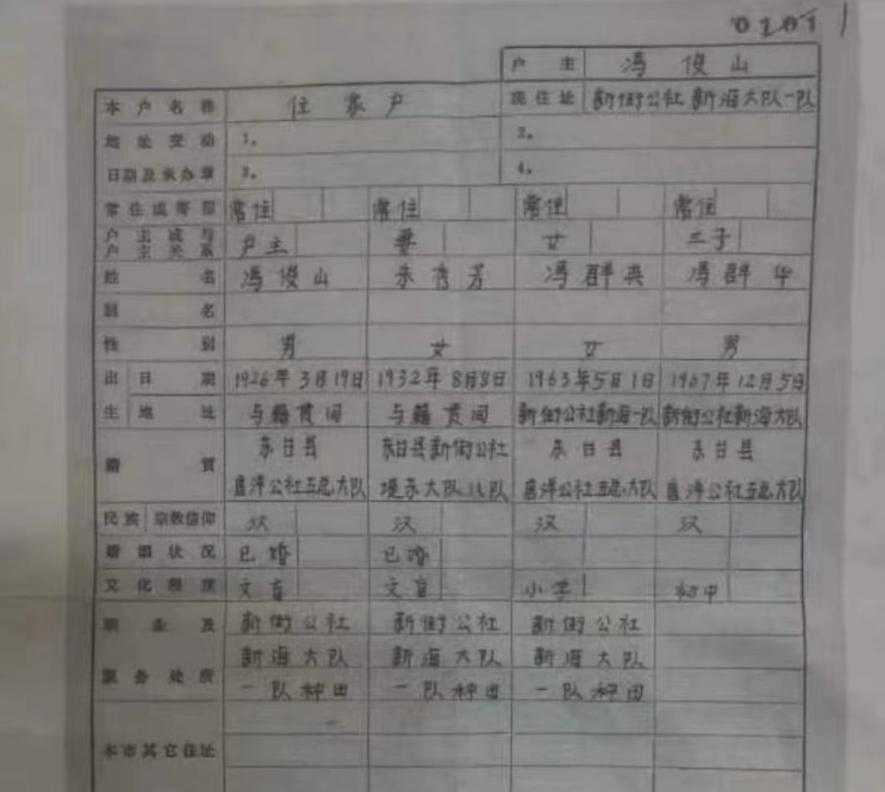 0101
户主 冯俊山
本户名称 住家户 现住址 新街公社新海大队一队
地址变动 1. 2.
日期及承办章 3. 4.
常住或寄留 常住 常住 常住 常住
户主或与户主关系 户主 妻 女 二子
姓名 冯俊山 朱秀芳 冯群英 冯群华
别名
性别 男 女 女 男
出生 日期 1926年3月19日 1932年8月8日 1963年5月1日 1967年12月5日
地址 与籍贯同 与籍贯同 新街公社新海一队 新街公社新海大队
籍贯 东台县 东台县新街公社 东台县 东台县
唐洋公社五总大队 堤东大队八队 唐洋公社五总大队 唐洋公社五总大队
民族 宗教信仰 汉 汉 汉 汉
婚姻状况 已婚 已婚
文化程度 文盲 文盲 小学 初中
职业及 新街公社 新街公社 新街公社
服务处所 新海大队 新海大队 新海大队
一队种田 一队种田 一队种田
本市其它住址